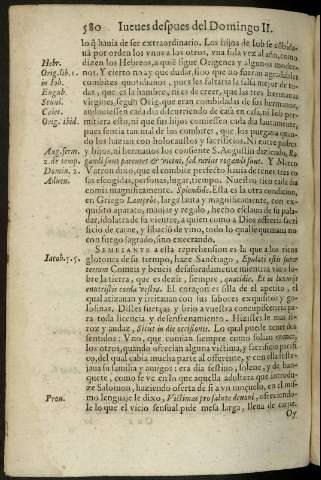 580 Iueues despues del Domingo II.
lo q̃ hauia de ser extraordinario. Los hijos de Iob se cõbida-
uã por orden los vnos a los otros, vna sola vez al año, como
Hebr. dizen los Hebreos, a quiẽ sigue Origenes y algunos moder-
Orig. lib. 1. nos. Y cierto no ay que dudar, sino que no fueran agradables
in Iob. combites quotidianos, pues les faltaria la salsa de to-
Engub. das, que es la hambre, ni es de creer, que las tres hermanas
Steuci. virgines, segun Orig. que eran combidadas de sus hermanos,
Caiet. anduuiessen cada dia discurriendo de casa en casa, ni Iob per-
Orig. ibid. mitiera esto, ni que sus hijos comiessen cada dia lautamente,
pues sentia tan mal de los combites, que los purgaua quan-
do los hazian con holocaustos y sacrificios. Ni entre padres
Aug. serm. y hijos, ni hermanos los consiente S. Augustin diziendo, Ro-
2. de temp. gandi sunt parentes & vicini, sed rarius rogandi sunt. Y Marco
Domin. 2. Varron dixo, que el combite perfecto hauia de tener tres co-
Aduen. sas escogidas, personas, lugar, tiempo. Nuestro rico cada dia
comia magnificamente. Splendide. Esta es la otra condicion,
en Griego Lamprôs, larga lauta y magnificamente, con ex-
quisito aparato, manjar y regalo, hecho esclauo de su pala-
dar, idolatra de su vientre, a quien como a Dios ofrecia sacri-
ficio de carne, y libació de vino, todo lo qual quemaua no
con fuego sagrado, sino execrando.
SEMEJANTE a esta reprehension es la que a los ricos
Iacob. 5. 5. glotones de su tiempo, haze Sanctiago, Epulati estis super
terram Comeis y beueis desaforadamente mientra viuis so-
bre la tierra, que es dezir, siempre, quotidie. Et in luxurijs
enutristis corda vestra. El coraçon es silla de el apetito, el
qual atizauan y irritauan con sus sabores exquisitos y go-
losinas. Distes fuerças y brio a vuestra concupiscencia pa-
ra toda licencia y desenfrenamiento. Hizistes le mas fe-
roz y audaz, Sicut in die occisionis. Lo qual puede tener dos
sentidos: Vno, que comian siempre como solian comer,
los otros, quando ofrecian alguna victima, y sacrificio pacifi-
co, del qual cabia mucha parte al offerente, y con ella feste-
jaua su familia y amigos: era dia festiuo, solene, y de ban-
quete, como se ve en lo que aquella adultera que introdu-
ze Salomon, haziendo oferta de si a vn moçuelo, en el mis-
Prou. mo lenguaje le dixo, Victimas pro salute deuoui, ofreciendo-
le lo que el vicio sensual pide mesa larga, llena de carne.
Oy